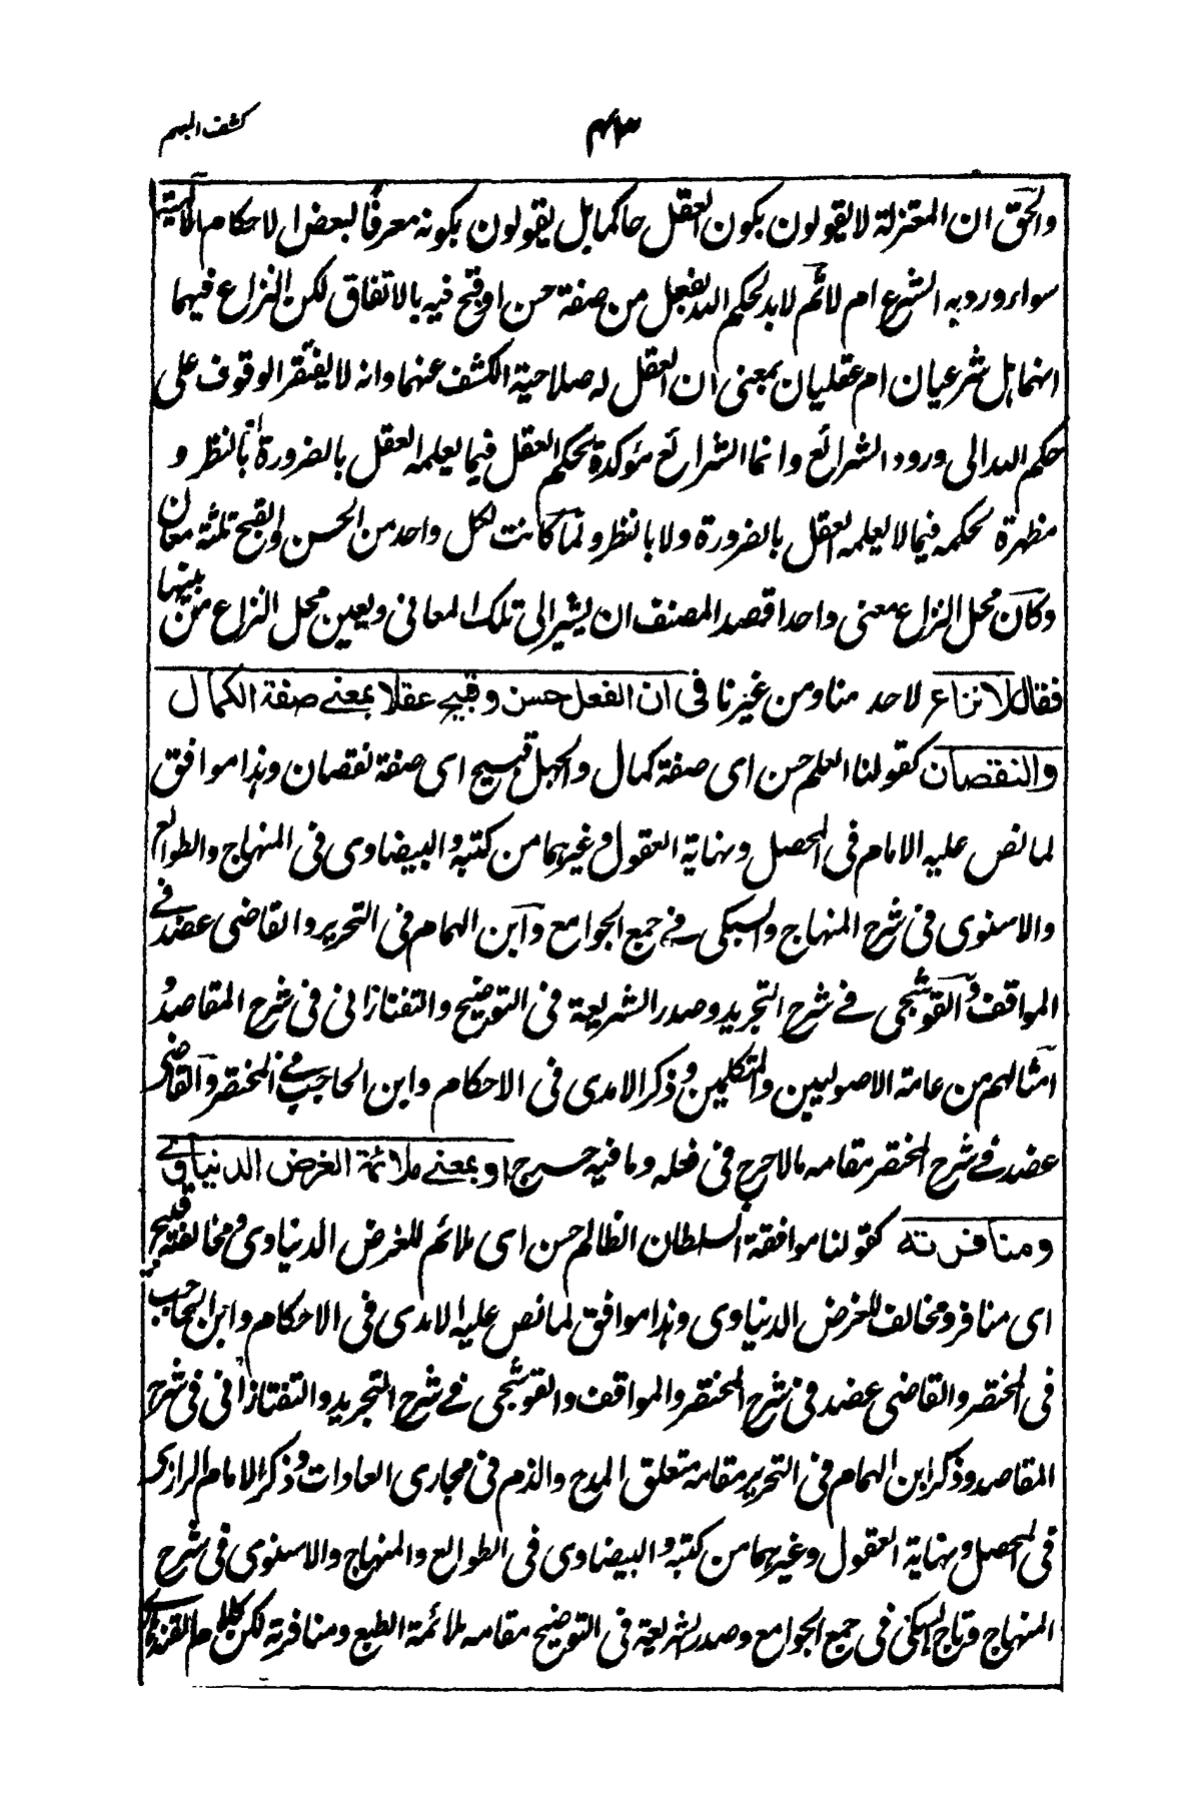 كشف المبهم
٤٣
والحق ان المعتزلة لا يقولون بكون العقل حاكما بل يقولون بكونه معرفا لبعض الاحكام الالهية
سواء ورد به الشرع ام لا ثم لا بد لحكم الله بفعل من صفة حسن او قبح فيه بالاتفاق لكن النزاع فيهما
انهما هل شرعيان ام عقليان بمعنى ان العقل له صلاحية الكشف عنهما وانه لا يفتقر الوقوف على
حكم الله الى ورود الشرائع وانما الشرائع مؤكدة لحكم العقل فيما يعلمه العقل بالضرورة او بالنظر و
مظهرة لحكمه فيما لا يعلمه العقل بالضرورة ولا بالنظر ولما كانت لكل واحد من الحسن والقبح ثلثة معان
وكان محل النزاع معنى واحدا قصد المصنف ان يشير الى تلك المعانى ويعين محل النزاع من بينها
فقال لا نزاع لاحد منا ومن غيرنا فى ان الفعل حسن وقبيح عقلا بمعنے صفة الكمال
والنقصان كقولنا العلم حسن اى صفة كمال والجهل قبيح اى صفة نقصان وهذا موافق
لما نص عليه الامام فى المحصل ونهاية العقول وغيرهما من كتبه والبيضاوى فى المنهاج والطوالع
والاسنوى فى شرح المنهاج والسبكى فے جمع الجوامع وابن الهمام فى التحرير والقاضى عضد فے
المواقف والقوشجى فے شرح التجريد وصدر الشريعة فى التوضيح والتفتازانى فى شرح المقاصد و
امثالهم من عامة الاصوليين والمتكلمين وذكر الامدى فى الاحكام وابن الحاجب فے المختصر والقاضى
عضد فے شرح المختصر مقامه مالا حرج فى فعله وما فيه حرج او بمعنے ملائمة الغرض الدنياوے
ومنافرته كقولنا موافقة السلطان الظالم حسن اى ملائم للغرض الدنياوى ومخالفته قبيح
اى منافر ومخالف للغرض الدنياوى وهذا موافق لما نص عليه الامدى فى الاحكام وابن الحاجب
فى المختصر والقاضى عضد فى شرح المختصر والمواقف والقوشجى فے شرح التجريد والتفتازانى فى شرح
المقاصد وذكر ابن الهمام فى التحرير مقامه متعلق المدح والذم فى مجارى العادات وذكر الامام الرازى
فى المحصل ونهاية العقول وغيرهما من كتبه والبيضاوى فى الطوالع والمنهاج والاسنوى فى شرح
المنهاج وتاج السبكى فى جمع الجوامع وصدر الشريعة فى التوضيح مقامه ملائمة الطبع ومنافرته لكن